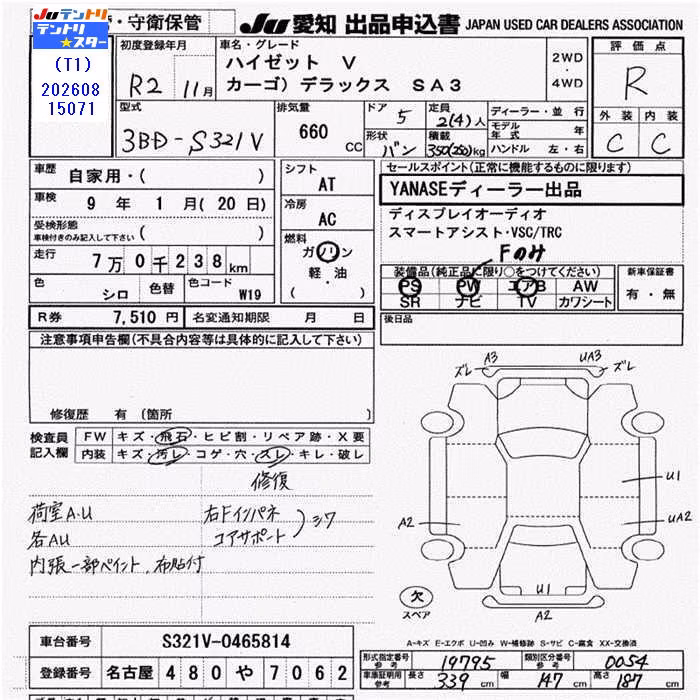 ・守衛保管
JU 愛知 出品申込書 JAPAN USED CAR DEALERS ASSOCIATION
JU テントリ
テントリ★スター
(T1)
202608
15071
初度登録年月
R2 11月
車名・グレード
ハイゼット V
カーゴ) デラックス SA3
2WD
・
4WD
評価点
R
外装 内装
C C
型式
3BD-S321V
排気量
660 CC
ドア
5
定員
2(4)人
形状
バン
積載
350(250)kg
ディーラー・並行
モデル年式 年
ハンドル 左・右
車歴
自家用・( )
車検
9 年 1 月 ( 20 日)
受検形態
車検付きのみ記入して下さい ( )
走行
7万0千238km
色
シロ
色替
色コード
W19
シフト
AT
冷房
AC
燃料
ガソリン
軽・油
( )
セールスポイント(正常に機能するものに限ります)
YANASEディーラー出品
ディスプレイオーディオ
スマートアシスト・VSC/TRC
Fのみ
装備品(純正品に限り○をつけてください)
PS PW エアB AW
SR ナビ TV カワシート
新車保証書
有・無
R券 7,510 円 名変通知期限 月 日
後日品
注意事項申告欄(不具合内容等は具体的に記入して下さい)
修復歴 有 (箇所 )
検査員
記入欄
FW キズ・飛石・ヒビ割・リペア跡・X要
内装 キズ・汚レ・コゲ・穴・スレ・キレ・破レ
修復
荷室A.U 右Fインパネ
各AU コアサポート )シワ
内張一部ペイント、布貼付
ズレ A3 UA3 ズレ
U1
A2 UA2
U1
A2
欠
スペア
A-キズ E-エクボ U-凹み W-補修跡 S-サビ C-腐食 XX-交換済
車台番号 S321V-0465814
登録番号 名古屋 480 や 7062
形式指定番号
参考
19795
類別区分番号
参考
0054
車庫証明用
参考
長さ 339 cm 幅 147 cm 高さ 187 cm